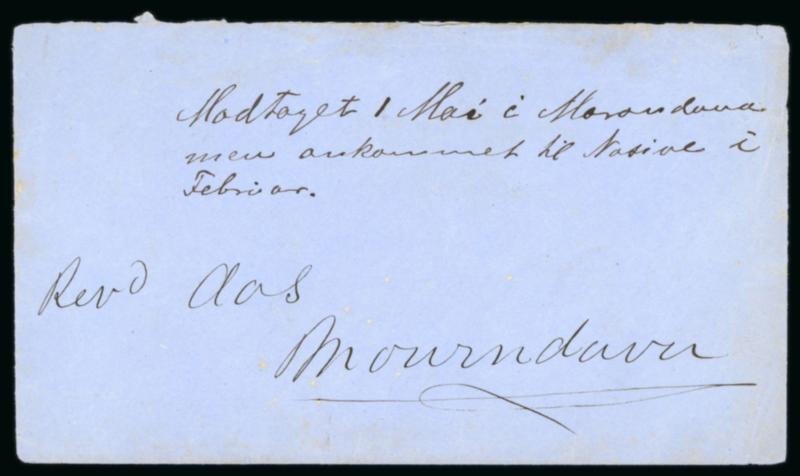 Modtaget 1 Mai i Morondava
men ankommet til Nosive i
Februar.
Revd Aas
Mourndava